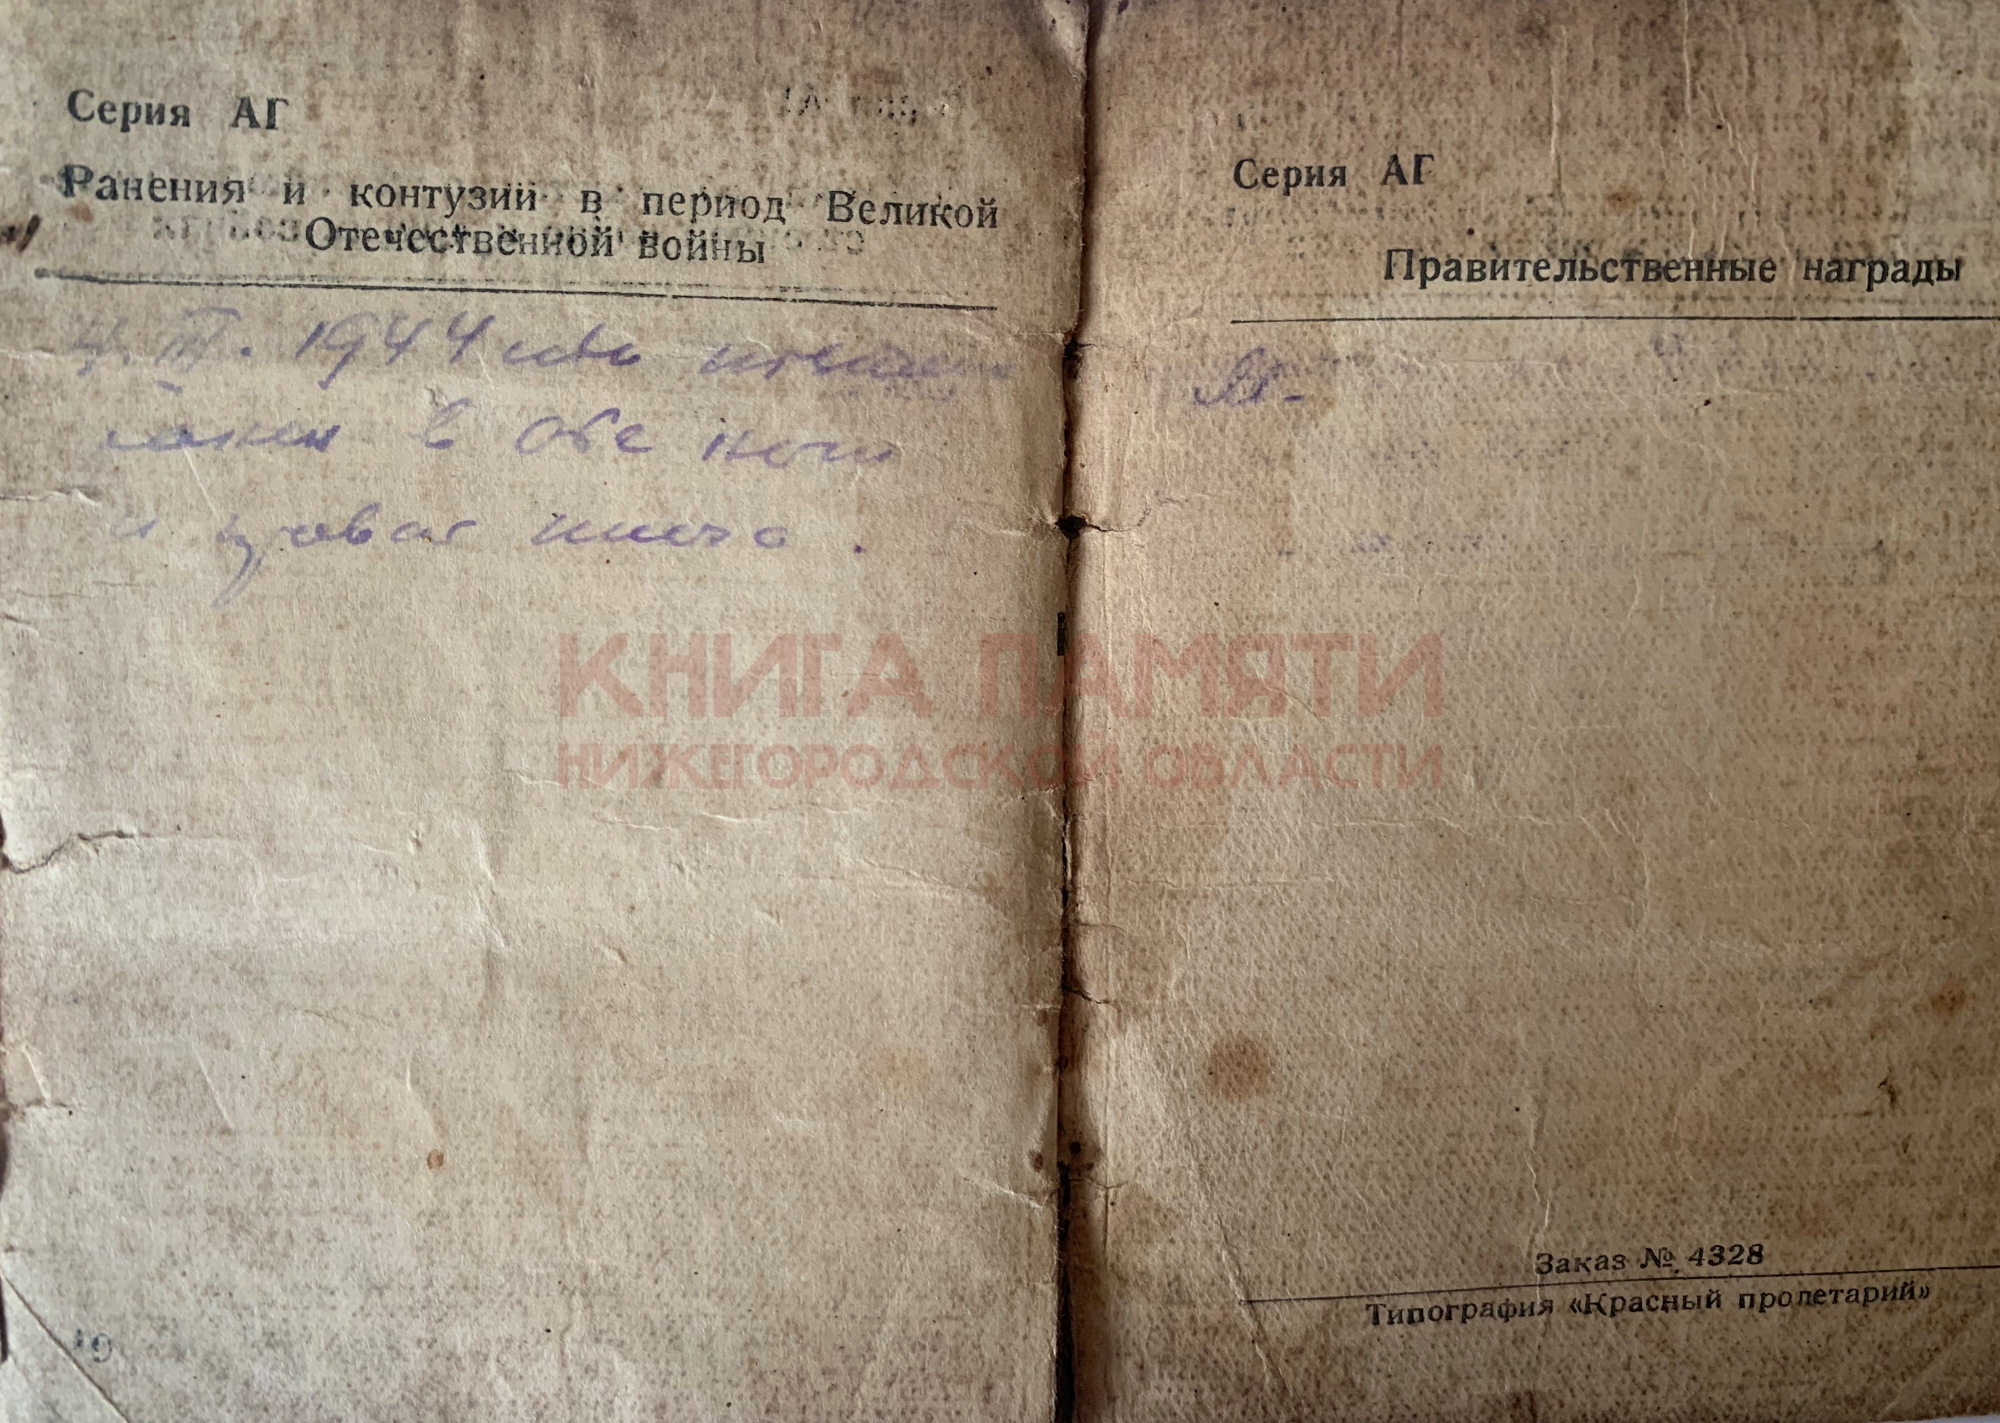 Серия АГ
Ранения и контузии в период Великой
Отечественной войны
4. III. 1944
в обе ноги
и правое плечо.
Серия АГ
Правительственные награды
КНИГА ПАМЯТИ
НИЖЕГОРОДСКОЙ ОБЛАСТИ
Заказ № 4328
Типография «Красный пролетарий»